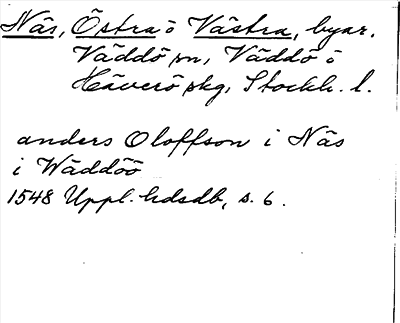 Näs, Östra o Västra, byar.
Väddö sn, Väddö o
Häverö skg, Stockh. l.
anders Oloffson i Näs
i Wäddöö
1548 Uppl. hdsdb, s. 6.